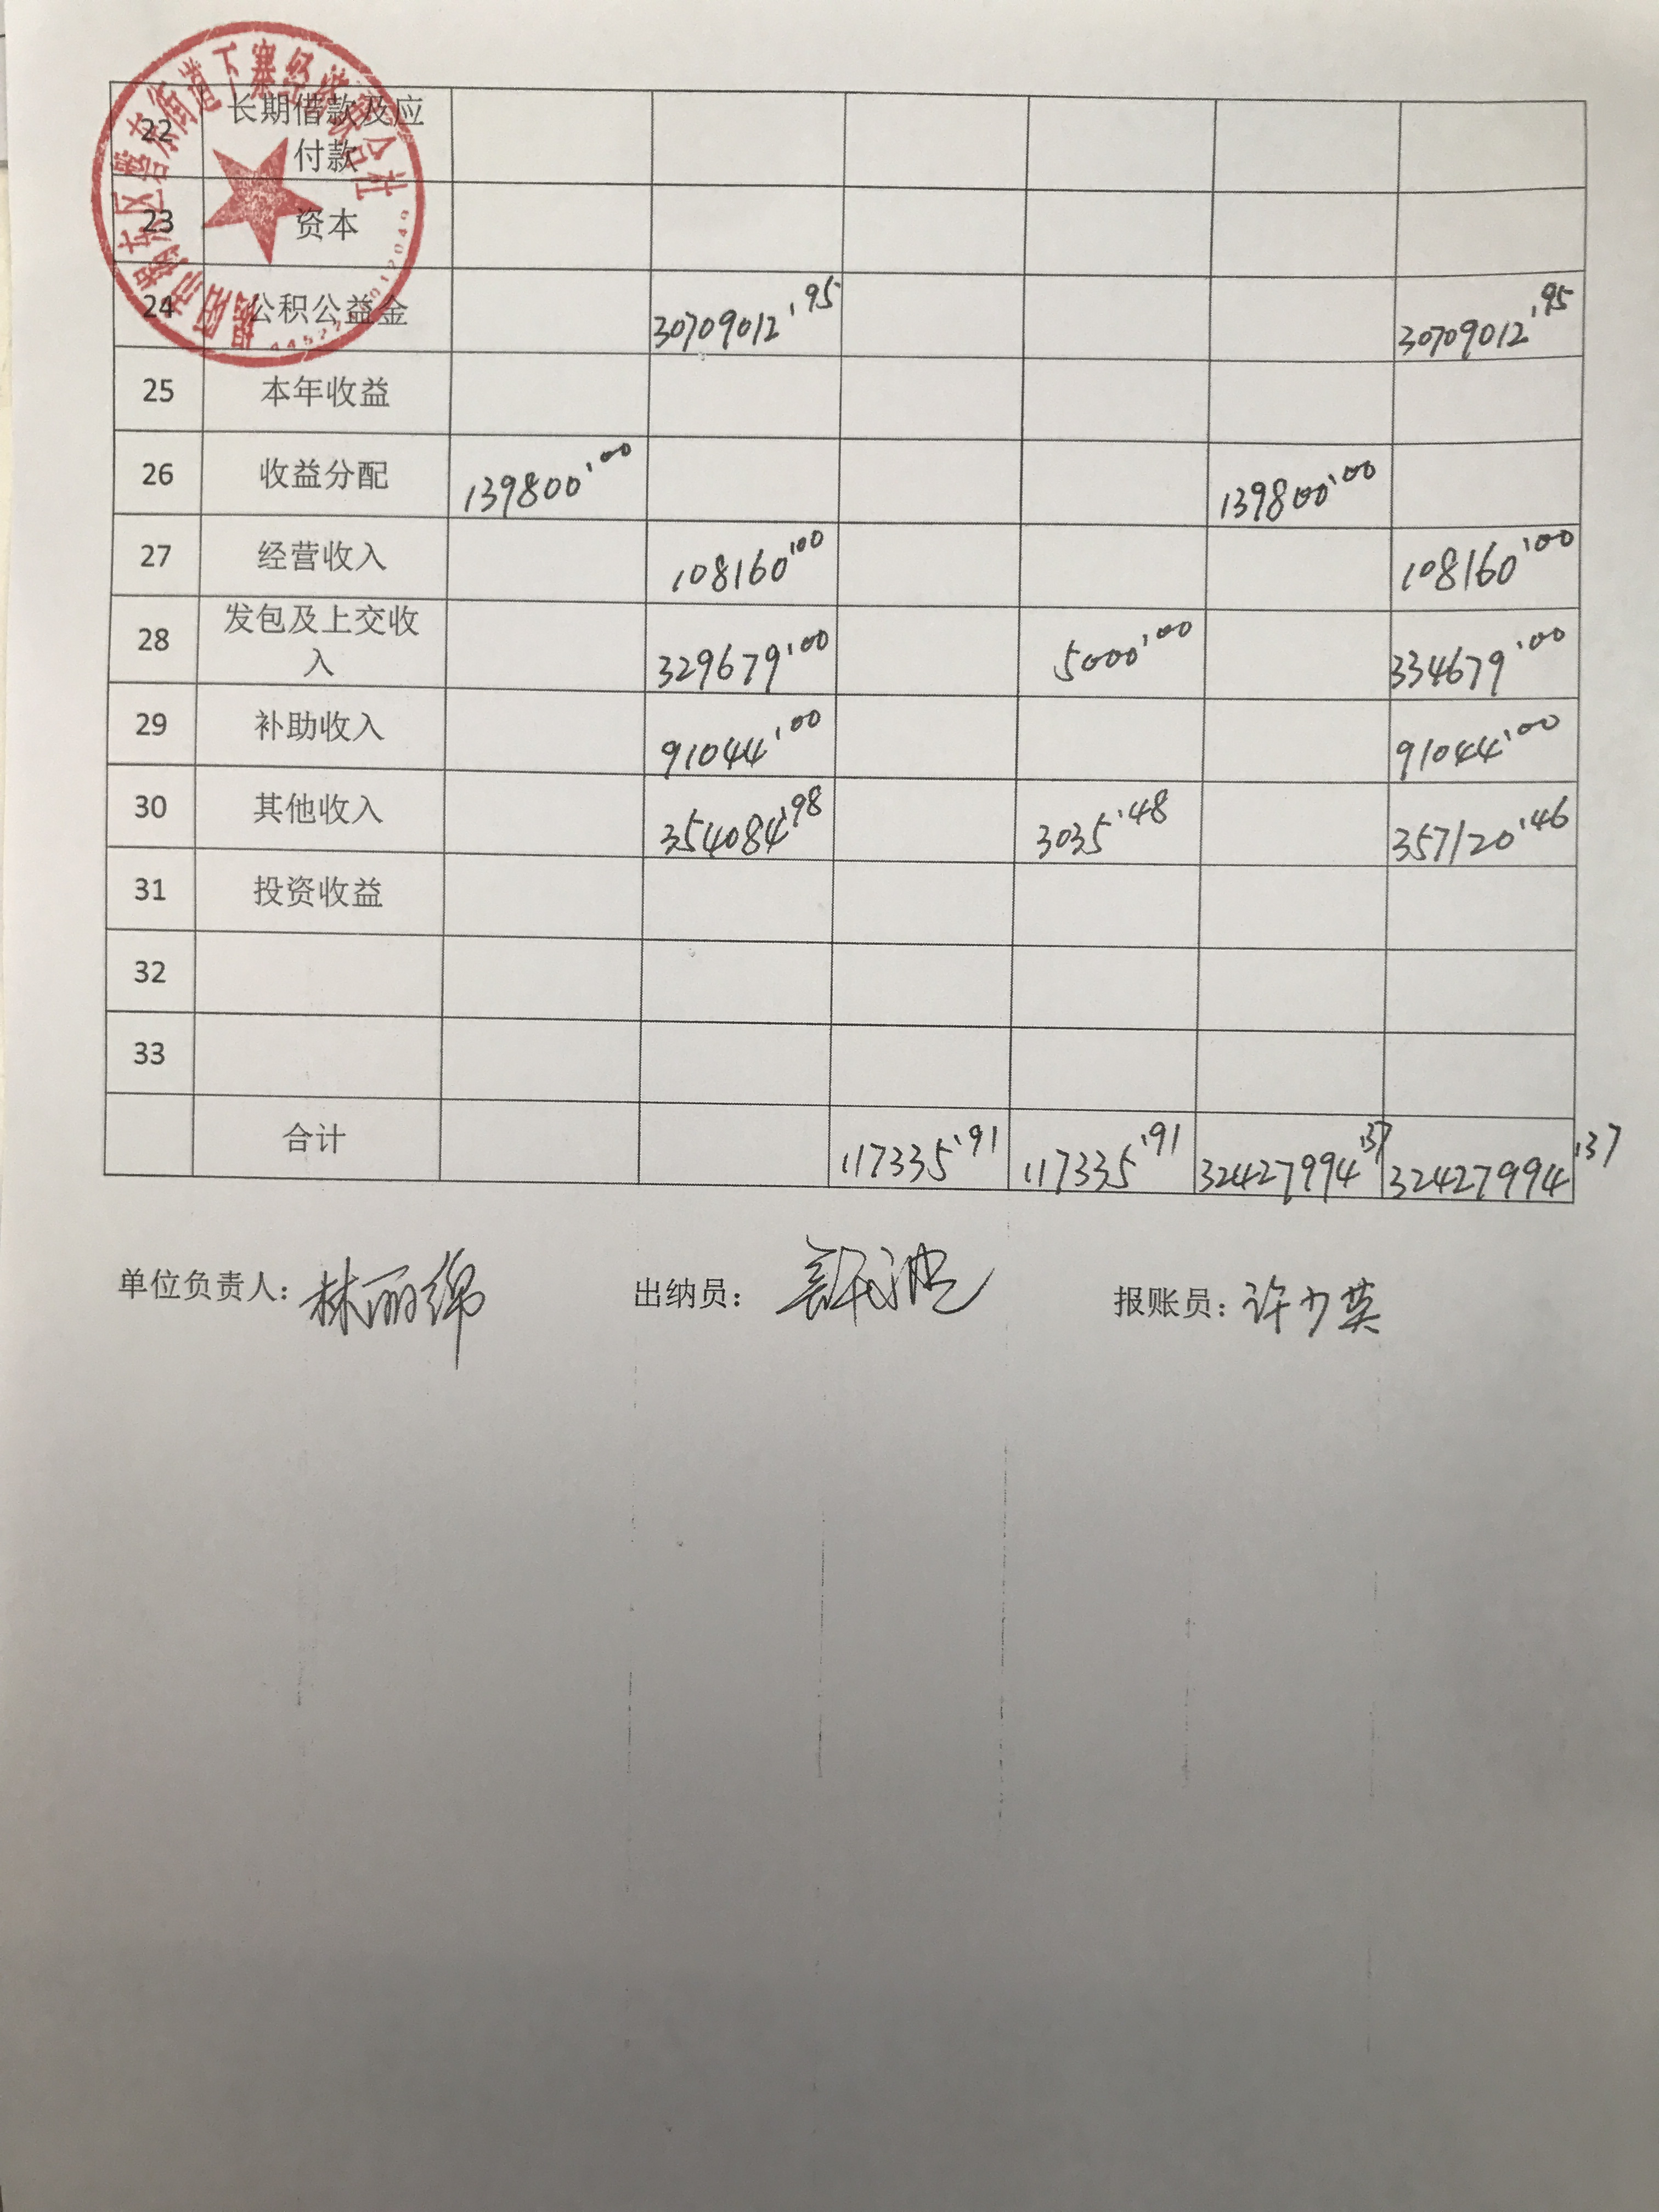 揭阳市揭东区磐东街道下寨经济联合社
22 长期借款及应
付款
23 资本
24 公积公益金 30709012.95 30709012.95
25 本年收益
26 收益分配 139800.00 139800.00
27 经营收入 108160.00 108160.00
28 发包及上交收
入 329679.00 5000.00 334679.00
29 补助收入 91044.00 91044.00
30 其他收入 354084.98 3035.48 357120.46
31 投资收益
32
33
合计 117335.91 117335.91 32427994.37 32427994.37
单位负责人: 林丽绵 出纳员: 报账员: 许少英